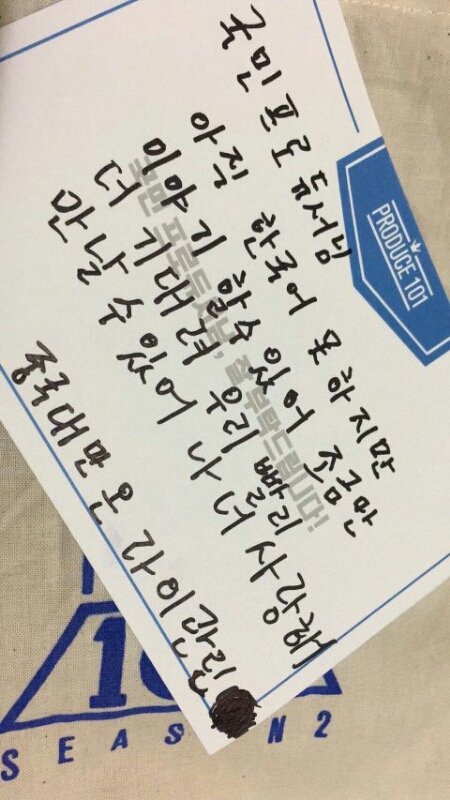 PRODUCE 101
국민 프로듀서님
아직 한국어 못 하지만
이야기 할 수 있어 조금만
더 기대려 우리 빨리
만날 수 있어 나 너 사랑해
중국대만 온
국민 프로듀서님, 잘 부탁드립니다!
SEASON 2